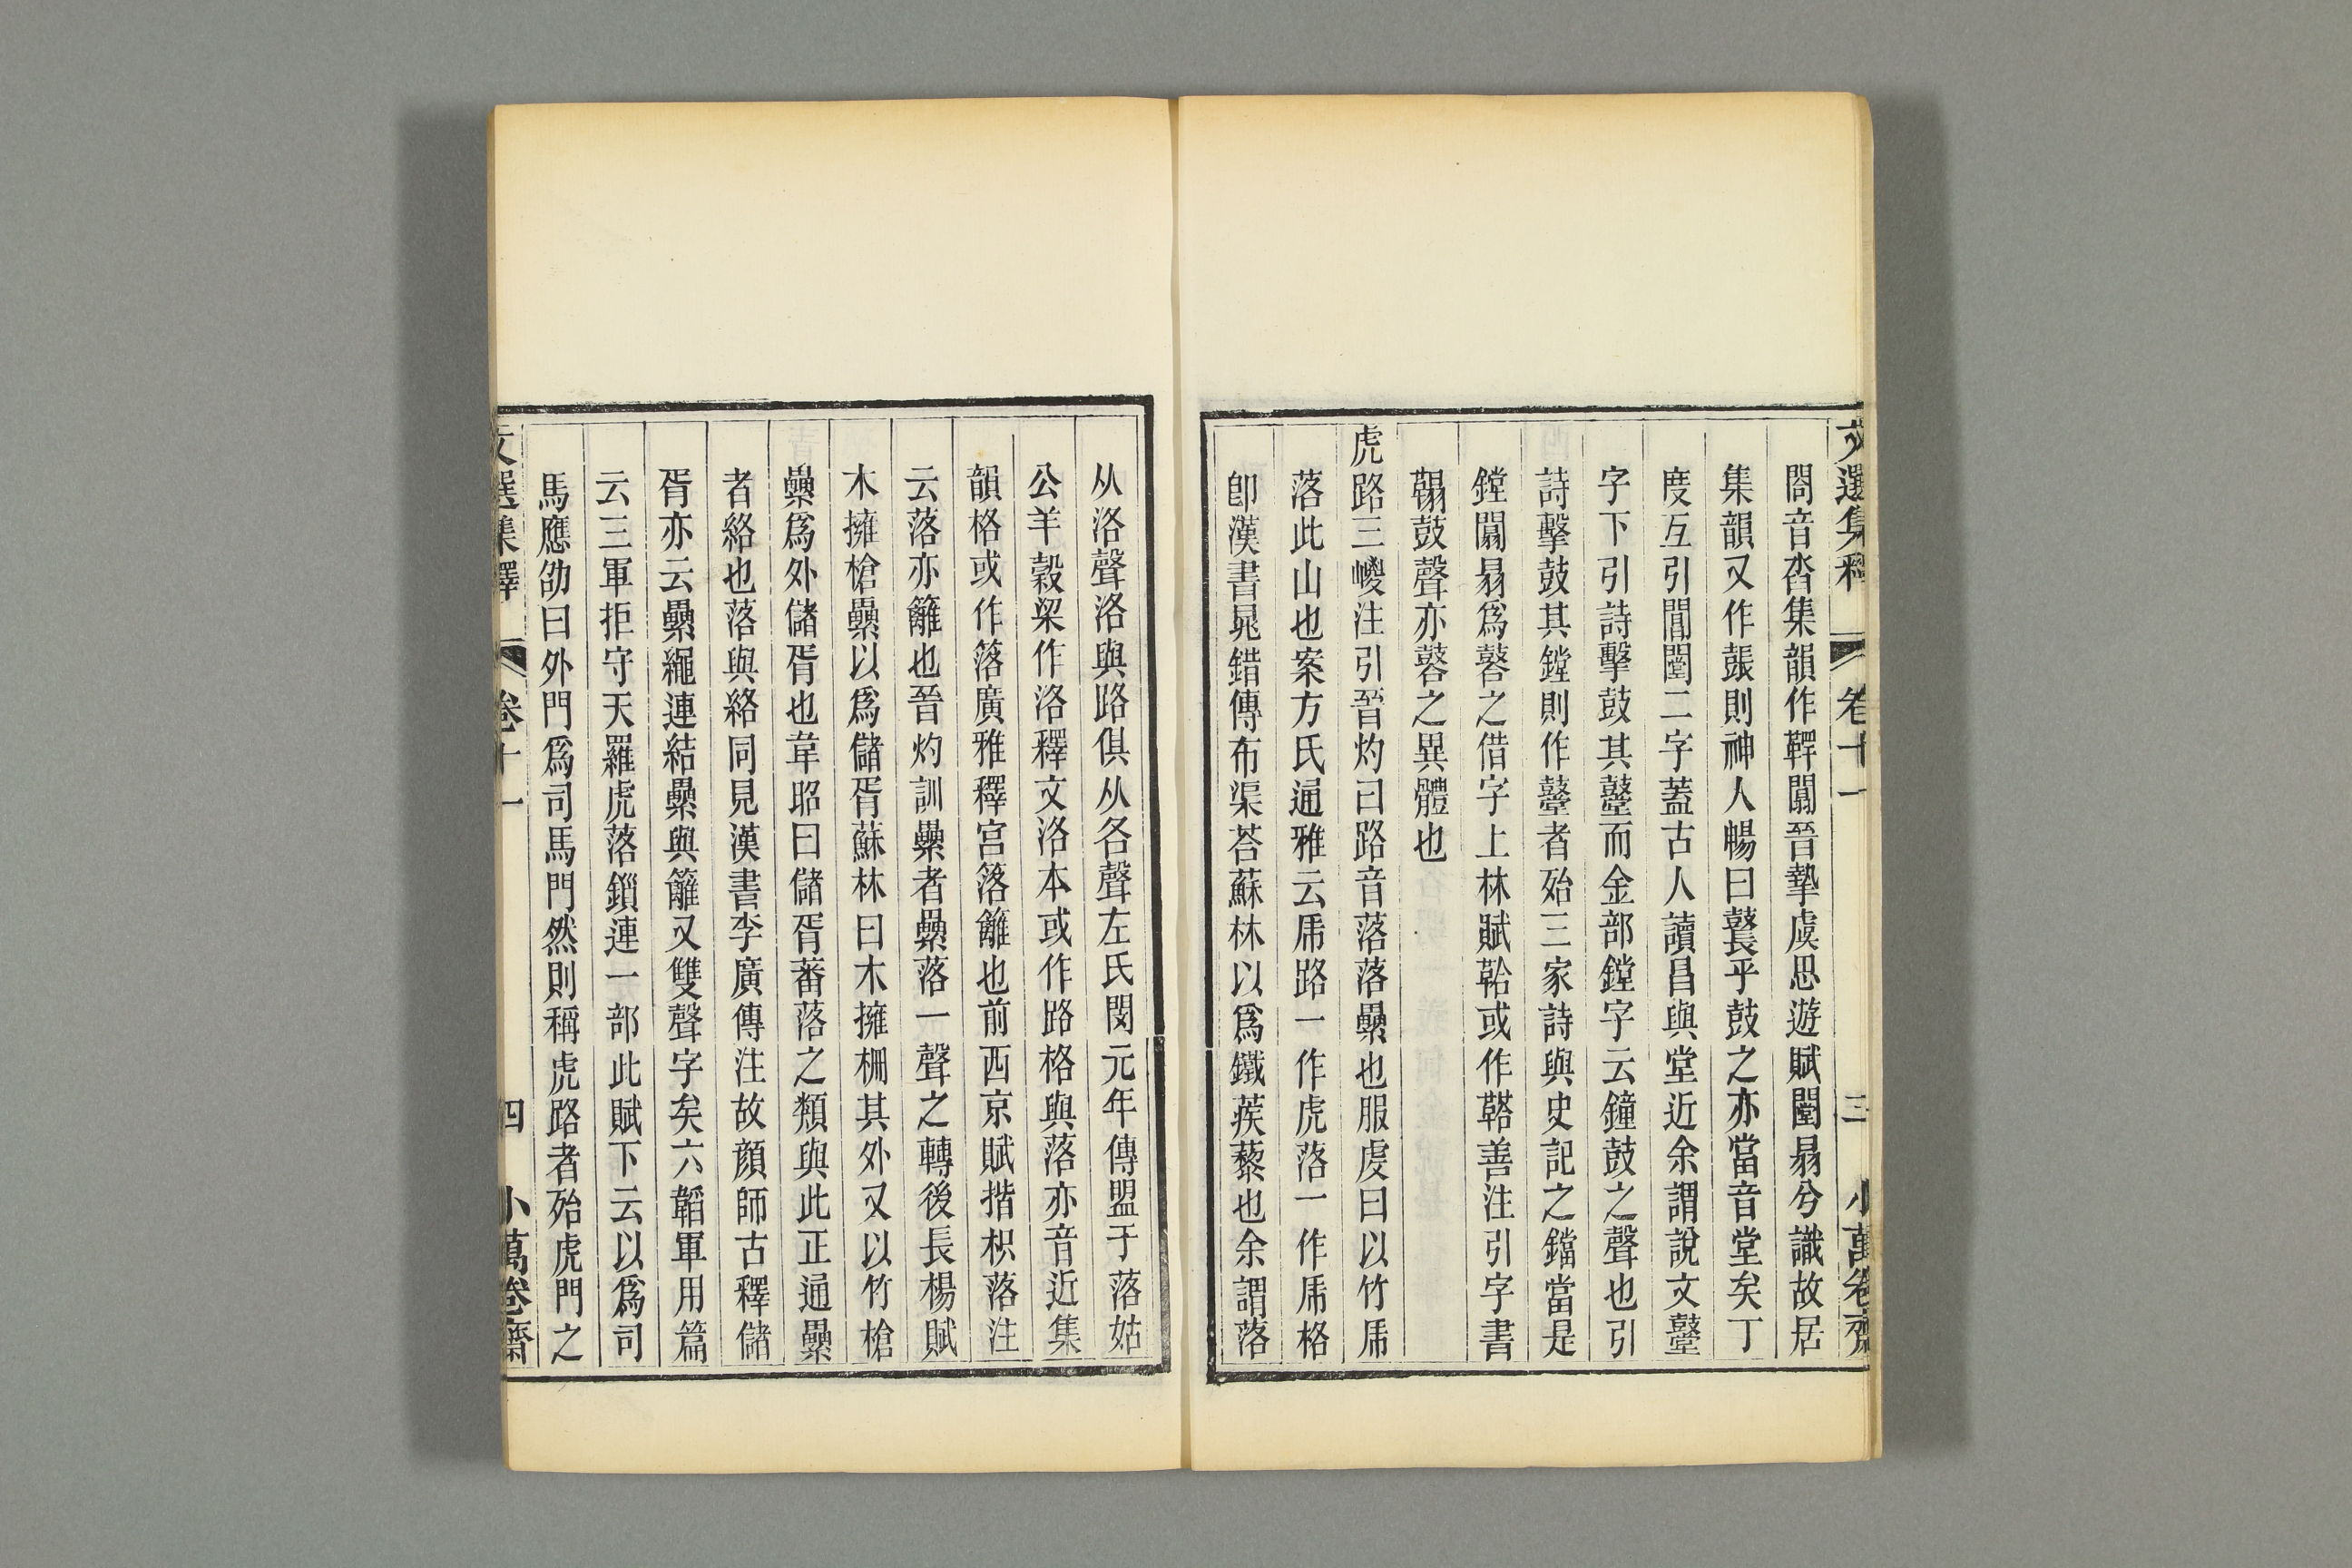 文選集釋 卷十一 三 小萬卷齋
閤音沓集韻作鞸闒晉摯虞思遊賦闛曷兮識故居
集韻又作䵽則神人暢曰鼚乎鼓之亦當音堂矣丁
度互引閶闛二字蓋古人讀昌與堂近余謂說文鼞
字下引詩擊鼓其鼞而金部鏜字云鐘鼓之聲也引
詩擊鼓其鏜則作鼞者殆三家詩與史記之鐺當是
鏜闒曷爲鼛之借字上林賦鞈或作鞳善注引字書
鞨鼓聲亦鼛之異體也
虎路三嵕注引晉灼曰路音落落纍也服虔曰以竹虒
落此山也案方氏通雅云虒路一作虎落一作虒格
卽漢書鼂錯傳布渠荅蘇林以爲鐵蒺藜也余謂落
从洛聲洛與路俱从各聲左氏閔元年傳盟于落姑
公羊穀梁作洛釋文洛本或作路格與落亦音近集
韻格或作箈廣雅釋宮落籬也前西京賦揩枳落注
云落亦籬也晉灼訓纍者纍落一聲之轉後長楊賦
木擁槍纍以爲儲胥蘇林曰木擁柵其外又以竹槍
纍爲外儲胥也韋昭曰儲胥蕃落之類與此正通纍
者絡也落與絡同見漢書李廣傳注故顔師古釋儲
胥亦云纍繩連結纍與籬又雙聲字矣六韜軍用篇
云三軍拒守天羅虎落鎖連一部此賦下云以爲司
馬應劭曰外門爲司馬門然則稱虎路者殆虎門之
文選集釋 卷十一 四 小萬卷齋